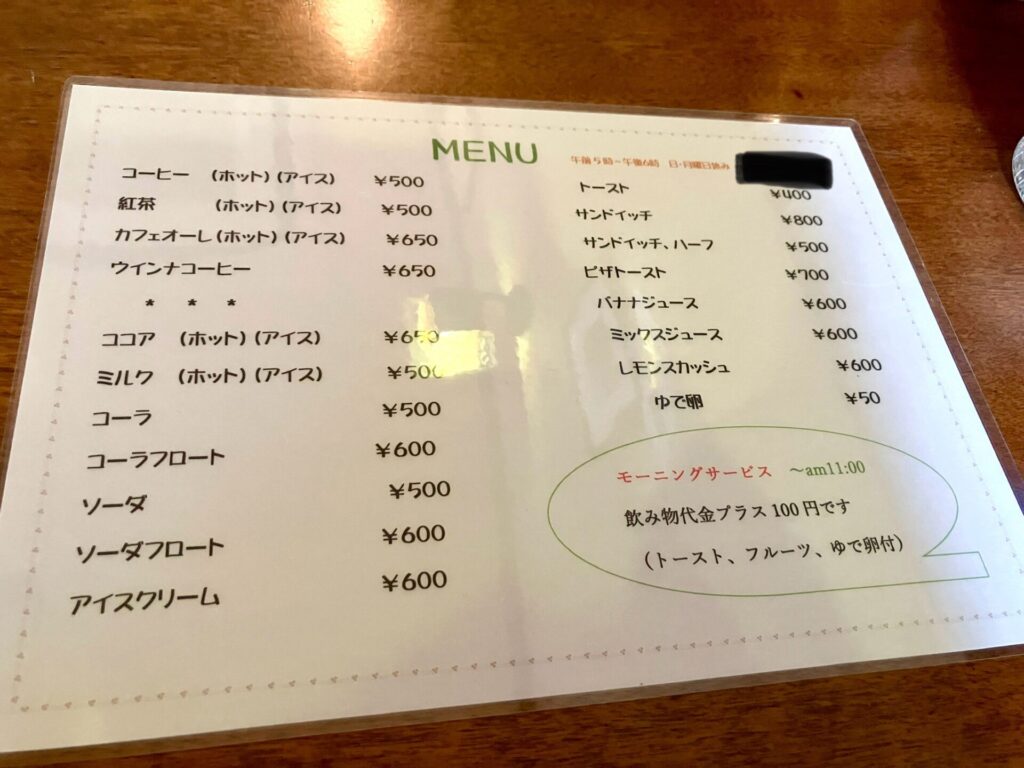 MENU 午前5時~午後6時 日・月曜日休み
コーヒー (ホット)(アイス) ¥500
紅茶 (ホット)(アイス) ¥500
カフェオーレ(ホット)(アイス) ¥650
ウインナコーヒー ¥650
* * *
ココア (ホット)(アイス) ¥650
ミルク (ホット)(アイス) ¥500
コーラ ¥500
コーラフロート ¥600
ソーダ ¥500
ソーダフロート ¥600
アイスクリーム ¥600
トースト ¥400
サンドイッチ ¥800
サンドイッチ、ハーフ ¥500
ピザトースト ¥700
バナナジュース ¥600
ミックスジュース ¥600
レモンスカッシュ ¥600
ゆで卵 ¥50
モーニングサービス ～am11:00
飲み物代金プラス100円です
（トースト、フルーツ、ゆで卵付）